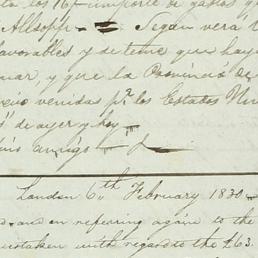 los 16/ importe de gastos q
Allsopp — Segun verá
favorables y de teme que hay
mar, y que la Provincia de
venidas pr. los Estados Uni
de ayer y hoy
amigo
London 6th February 1830
and on referring again to the
undertaken with regard to the £63.